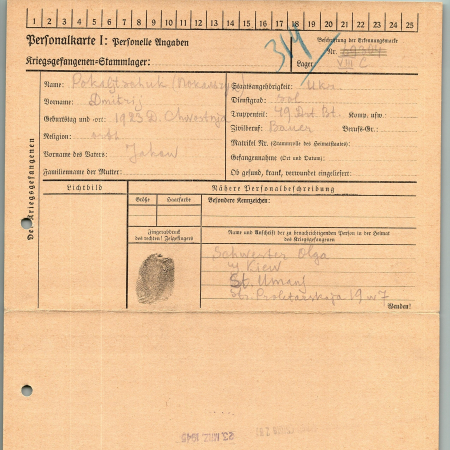 1 2 3 4 5 6 7 8 9 10 11 12 13 14 15 16 17 18 19 20 21 22 23 24 25
Personalkarte I: Personelle Angaben
Kriegsgefangenen-Stammlager:
Beschriftung der Erkennungsmarke
Nr.
Lager: VIII C
314
Des Kriegsgefangenen
Name:
Vorname: Dmitrij
Geburtstag und -ort: 1923 D.
Religion: orth
Vorname des Vaters:
Familienname der Mutter:
Staatsangehörigkeit: Ukr.
Dienstgrad: sol
Truppenteil: 49 Komp. usw.:
Zivilberuf: Bauer Berufs-Gr.:
Matrikel Nr. (Stammrolle des Heimatstaates):
Gefangennahme (Ort und Datum):
Ob gesund, krank, verwundet eingeliefert:
Lichtbild
Nähere Personalbeschreibung
Größe
Haarfarbe
Besondere Kennzeichen:
Fingerabdruck
des rechten! Zeigefingers
Name und Anschrift der zu benachrichtigenden Person in der Heimat
des Kriegsgefangenen
Schwester Olga
Kiew
St. Umanj
Proletarskaja 19 w 7
Wenden!